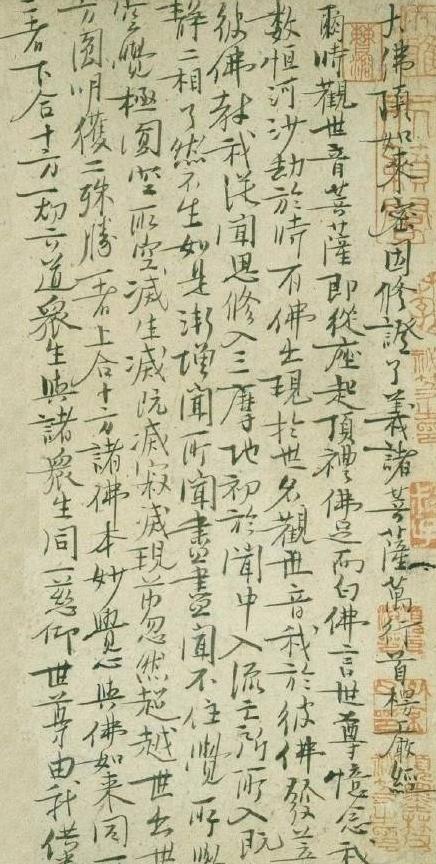 大佛頂如來密因修證了義諸菩薩萬行首楞嚴經
爾時觀世音菩薩即從座起頂禮佛足而白佛言世尊憶念我
數恒河沙劫於時有佛出現於世名觀世音我於彼佛發菩
彼佛教我從聞思修入三摩地初於聞中入流亡所所入既
靜二相了然不生如是漸增聞所聞盡盡聞不住覺所覺
空覺極圓空所空滅生滅既滅寂滅現前忽然超越世出世
方圓明獲二殊勝一者上合十方諸佛本妙覺心與佛如來同一
二者下合十方一切六道眾生與諸眾生同一悲仰世尊由我供